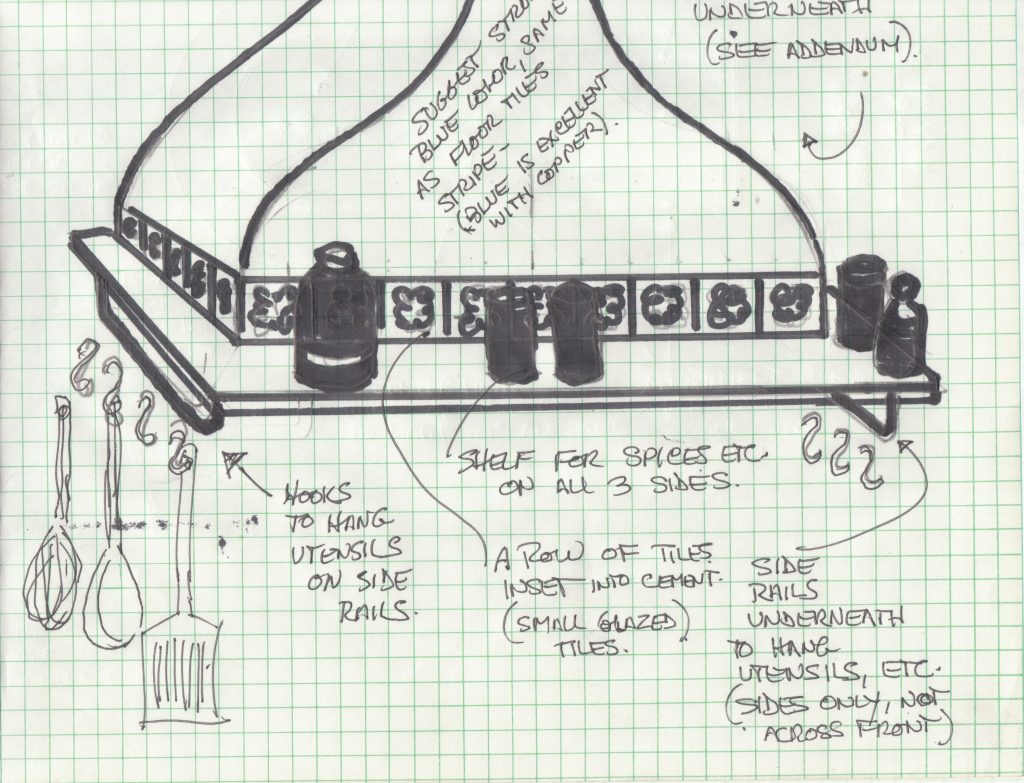 UNDERNEATH
(SEE ADDENDUM).
SUGGEST
BLUE COLOR, SAME
AS FLOOR TILES
STRIPE-
(BLUE IS EXCELLENT
WITH COPPER).
SHELF FOR SPICES ETC.
ON ALL 3 SIDES.
HOOKS
TO HANG
UTENSILS
ON SIDE
RAILS.
A ROW OF TILES
INSET INTO CEMENT.
(SMALL GLAZED)
TILES.
SIDE
RAILS
UNDERNEATH
TO HANG
UTENSILS, ETC.
(SIDES ONLY, NOT
ACROSS FRONT)